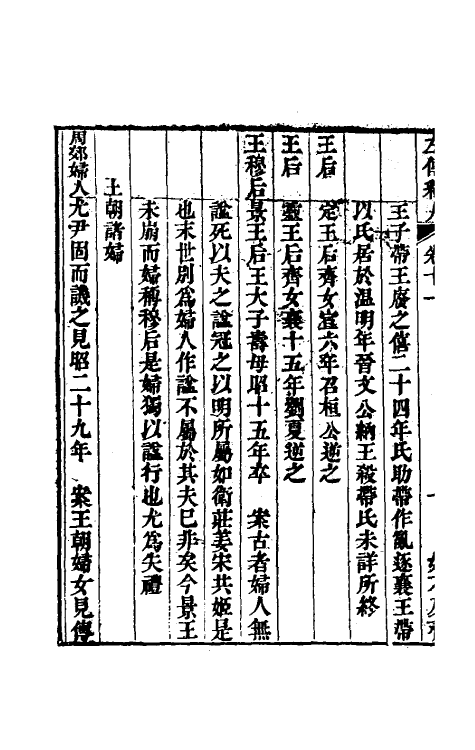 左傳釋人 卷十一
王子帶王廢之僖二十四年氏助帶作亂逐襄王帶
以氏居於溫明年晉文公納王殺帶氏未詳所終
王后 定王后齊女宣六年召桓公逆之
王后 靈王后齊女襄十五年劉夏逆之
王穆后景王后王大子壽母昭十五年卒 案古者婦人無
諡死以夫之諡冠之以明所屬如衛莊姜宋共姬是
也末世別為婦人作諡不屬於其夫已非矣今景王
未崩而婦稱穆后是婦獨以諡行也尤為失禮
王朝諸婦
周郊婦人尤尹固而譏之見昭二十九年 案王朝婦女見傳